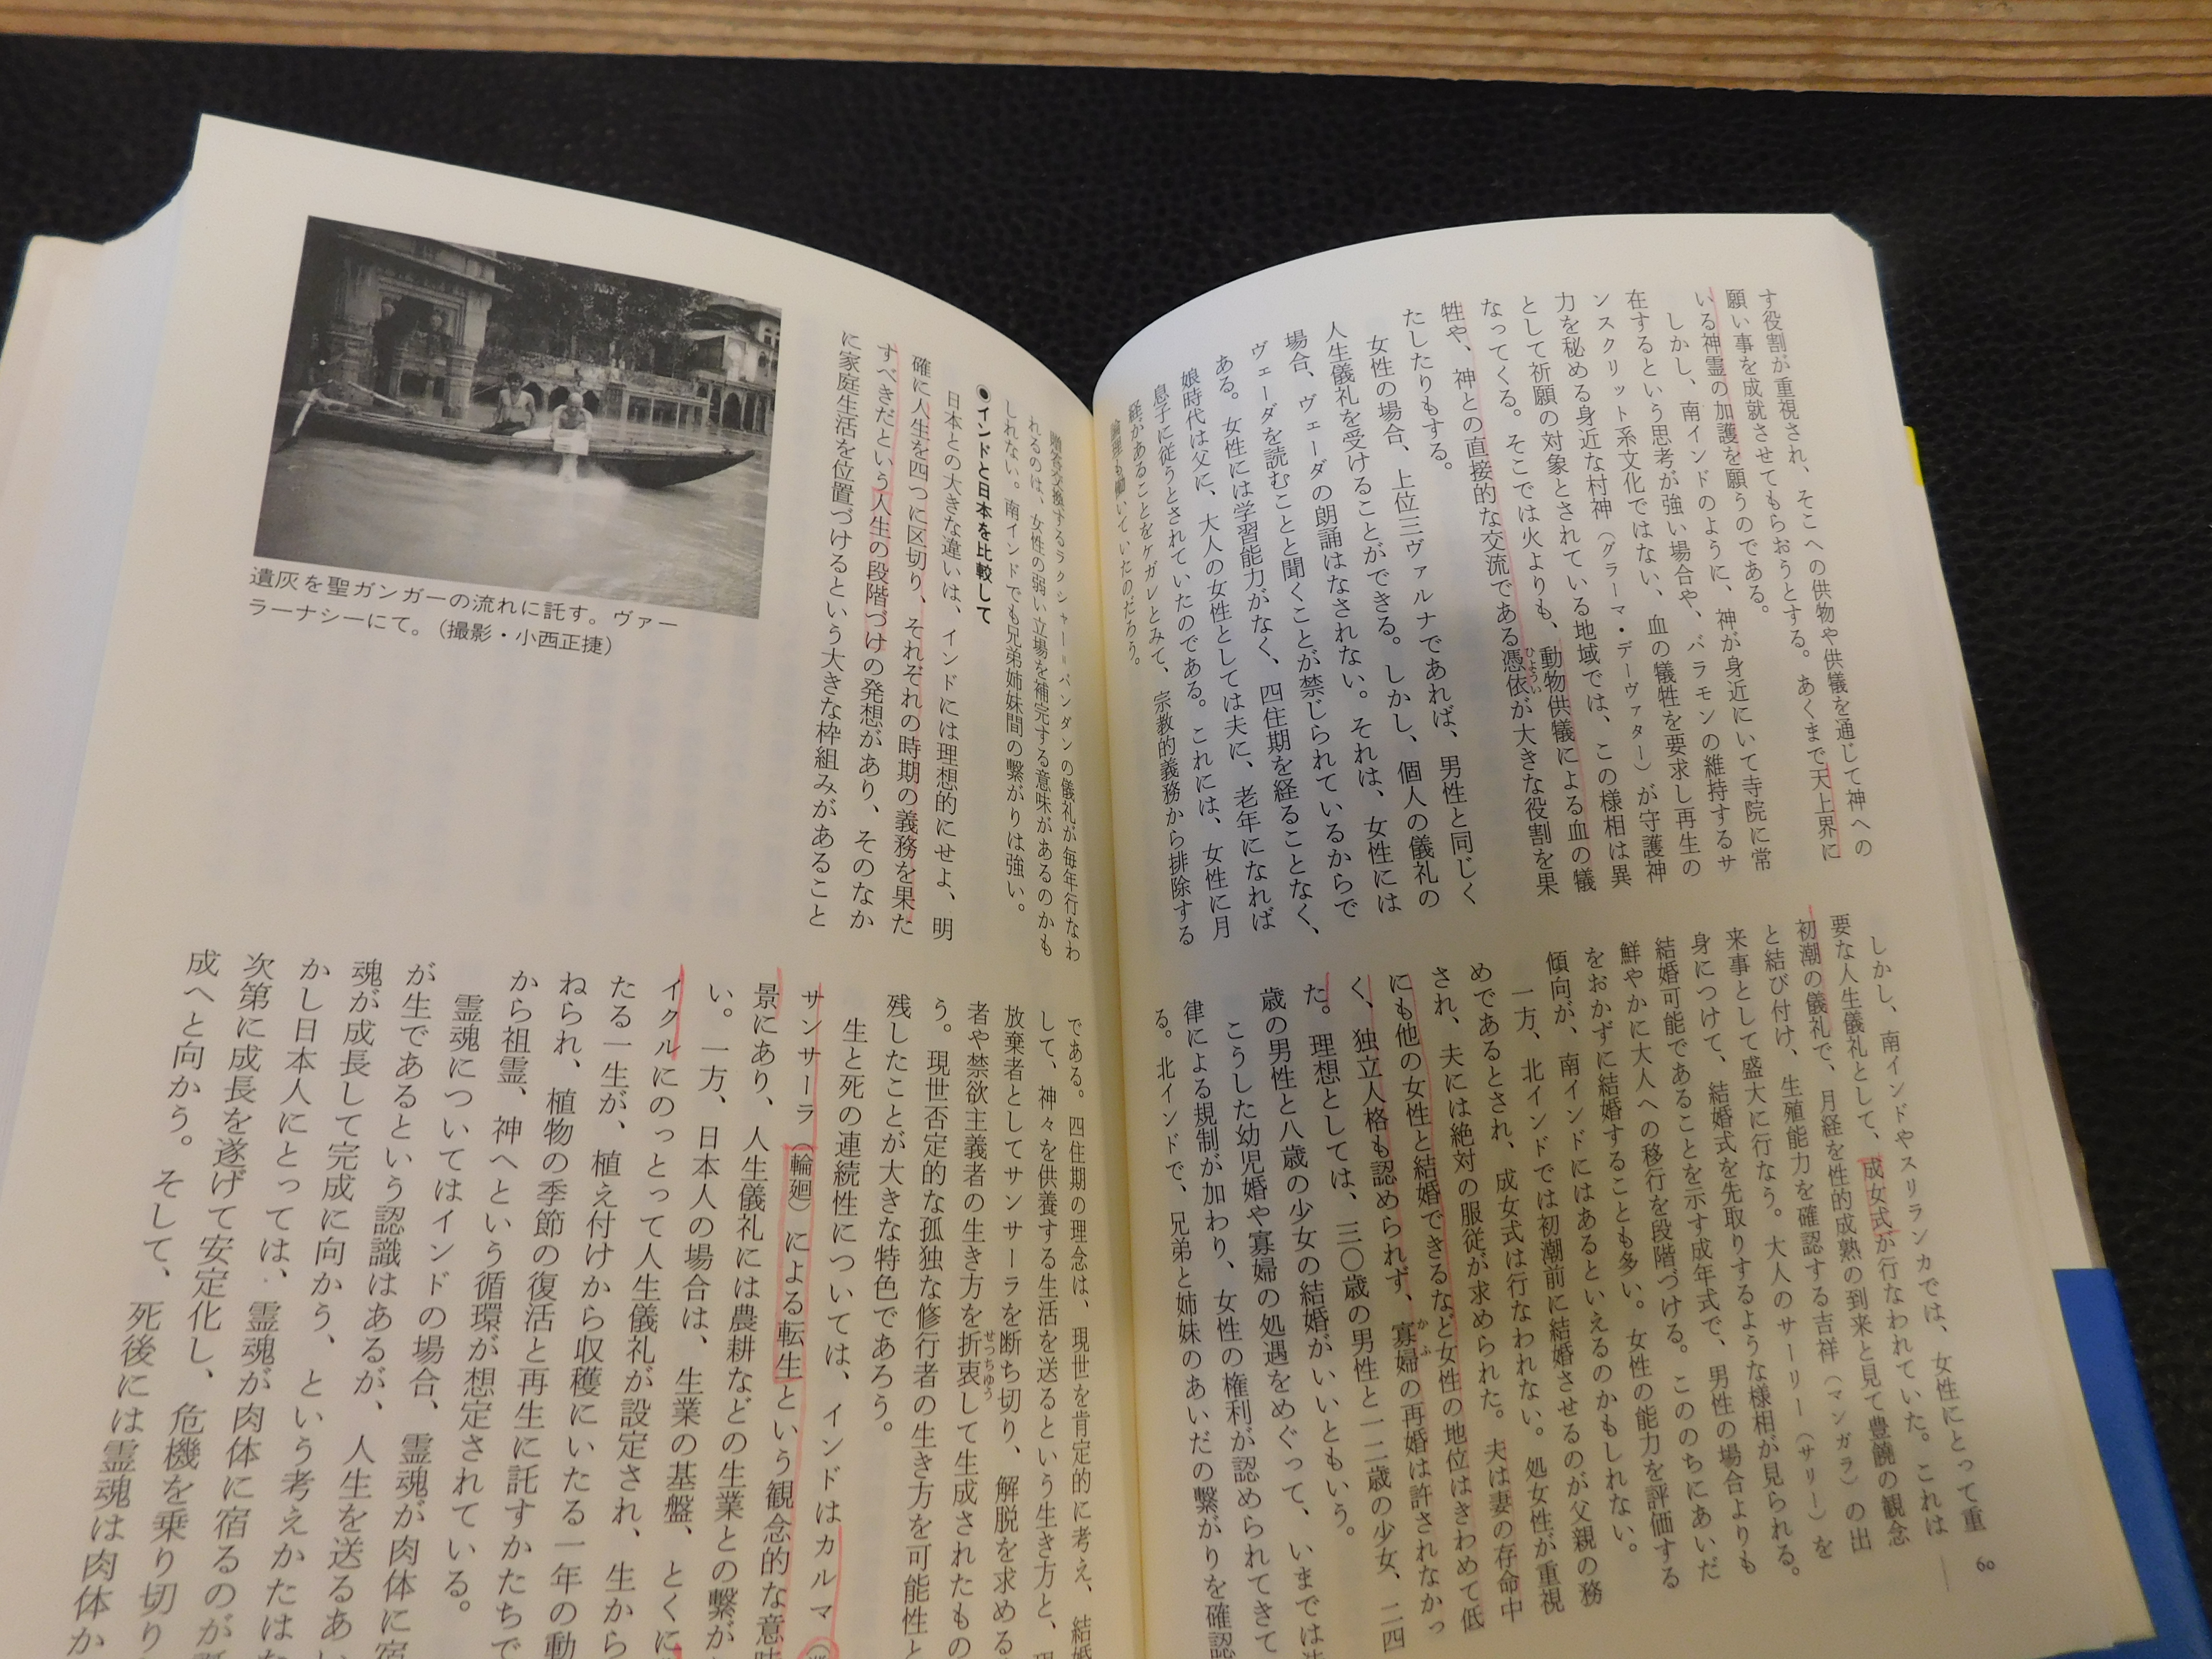 す役割が重視され、そこへの供物や供犠を通じて神への
願い事を成就させてもらおうとする。あくまで天上界に
いる神霊の加護を願うのである。
しかし、南インドのように、神が身近にいて寺院に常
在するという思考が強い場合や、バラモンの維持するサ
ンスクリット系文化ではない、血の犠牲を要求し再生の
力を秘める身近な村神（グラーマ・デーヴァター）が守護神
として祈願の対象とされている地域では、この様相は異
なってくる。そこでは火よりも、動物供犠による血の犠
牲や、神との直接的な交流である憑依が大きな役割を果
ひょうい
たしたりもする。
女性の場合、上位三ヴァルナであれば、男性と同じく
人生儀礼を受けることができる。しかし、個人の儀礼の
場合、ヴェーダの朗誦はなされない。それは、女性には
ヴェーダを読むことと聞くことが禁じられているからで
ある。女性には学習能力がなく、四住期を経ることなく、
娘時代は父に、大人の女性としては夫に、老年になれば
息子に従うとされていたのである。これには、女性に月
経があることをケガレとみて、宗教的義務から排除する
論理も働いていたのだろう。
しかし、南インドやスリランカでは、女性にとって重
要な人生儀礼として、成女式が行なわれていた。これは
初潮の儀礼で、月経を性的成熟の到来と見て豊饒の観念
と結び付け、生殖能力を確認する吉祥（マンガラ）の出
来事として盛大に行なう。大人のサーリー（サリー）を
身につけて、結婚式を先取りするような様相が見られる。
結婚可能であることを示す成年式で、男性の場合よりも
鮮やかに大人への移行を段階づける。このちにあいだ
をおかずに結婚することも多い。女性の能力を評価する
傾向が、南インドにはあるといえるのかもしれない。
一方、北インドでは初潮前に結婚させるのが父親の務
めであるとされ、成女式は行なわれない。処女性が重視
され、夫には絶対の服従が求められた。夫は妻の存命中
にも他の女性と結婚できるなど女性の地位はきわめて低
く、独立人格も認められず、寡婦の再婚は許されなかっ
かふ
た。理想としては、三〇歳の男性と一二歳の少女、二四
歳の男性と八歳の少女の結婚がいいともいう。
こうした幼児婚や寡婦の処遇をめぐって、いまでは
律による規制が加わり、女性の権利が認められてきて
る。北インドで、兄弟と姉妹のあいだの繋がりを確認
60
贈答交換するラクシャー＝バンダンの儀礼が毎年行なわ
れるのは、女性の弱い立場を補完する意味があるのかも
しれない。南インドでも兄弟姉妹間の繋がりは強い。
◉インドと日本を比較して
日本との大きな違いは、インドには理想的にせよ、明
確に人生を四つに区切り、それぞれの時期の義務を果た
すべきだという人生の段階づけの発想があり、そのなか
に家庭生活を位置づけるという大きな枠組みがあること
遺灰を聖ガンガーの流れに託す。ヴァー
ラーナシーにて。（撮影・小西正捷）
である。四住期の理念は、現世を肯定的に考え、結婚
して、神々を供養する生活を送るという生き方と、現
放棄者としてサンサーラを断ち切り、解脱を求める
者や禁欲主義者の生き方を折衷して生成されたもの
せっちゅう
う。現世否定的な孤独な修行者の生き方を可能性と
残したことが大きな特色であろう。
生と死の連続性については、インドはカルマ
サンサーラ（輪廻）による転生という観念的な意味
景にあり、人生儀礼には農耕などの生業との繋が
い。一方、日本人の場合は、生業の基盤、とくに
イクルにのっとって人生儀礼が設定され、生から
たる一生が、植え付けから収穫にいたる一年の動
ねられ、植物の季節の復活と再生に託すかたちで
から祖霊、神へという循環が想定されている。
霊魂についてはインドの場合、霊魂が肉体に宿
が生であるという認識はあるが、人生を送るあい
魂が成長して完成に向かう、という考えかたはな
かし日本人にとっては、霊魂が肉体に宿るのが
次第に成長を遂げて安定化し、危機を乗り切り
成へと向かう。そして、死後には霊魂は肉体か